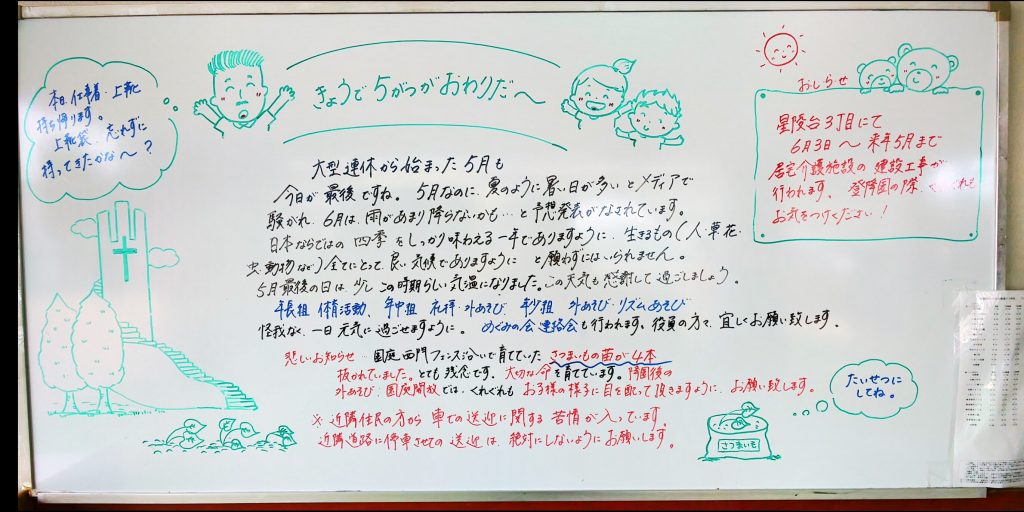 きょうで5がつがおわりだ〜
本日、仕事着・上靴
持ち帰ります。
上靴袋、忘れずに
持ってきたかな〜？
おしらせ
星陵台3丁目にて
6月3日〜来年5月まで
居宅介護施設の建設工事が
行われます。登降園の際、くれぐれも
お気をつけください！
大型連休から始まった5月も
今日が最後ですね。5月なのに、夏のように暑い日が多いとメディアで
騒がれ、6月は、雨があまり降らないかも…と予想発表がなされています。
日本ならではの四季をしっかり味わえる一年でありますように、生きるもの（人・草花・
虫・動物など）全てにとって、良い気候でありますように と願わずにはいられません。
5月最後の日は、少しこの時期らしい気温になりました。この天気も感謝して過ごしましょう。
年長組 体育活動、年中組 礼拝・外あそび、年少組 外あそび・リズムあそび
怪我なく、一日元気に過ごせますように。めぐみの会連絡会も行われます。役員の方々、宜しくお願い致します。
悲しいお知らせ…園庭西門フェンス沿いで育てていた さつまいもの苗が4本
抜かれていました。とても残念です。大切な命を育てています。降園後の
外あそび、園庭開放では、くれぐれもお子様の様子に目を配って頂きますように、お願い致します。
※近隣住民の方から車での送迎に関する苦情が入っています。
近隣道路に停車させての送迎は、絶対にしないようにお願いします。
たいせつに
してね。
さつまいも